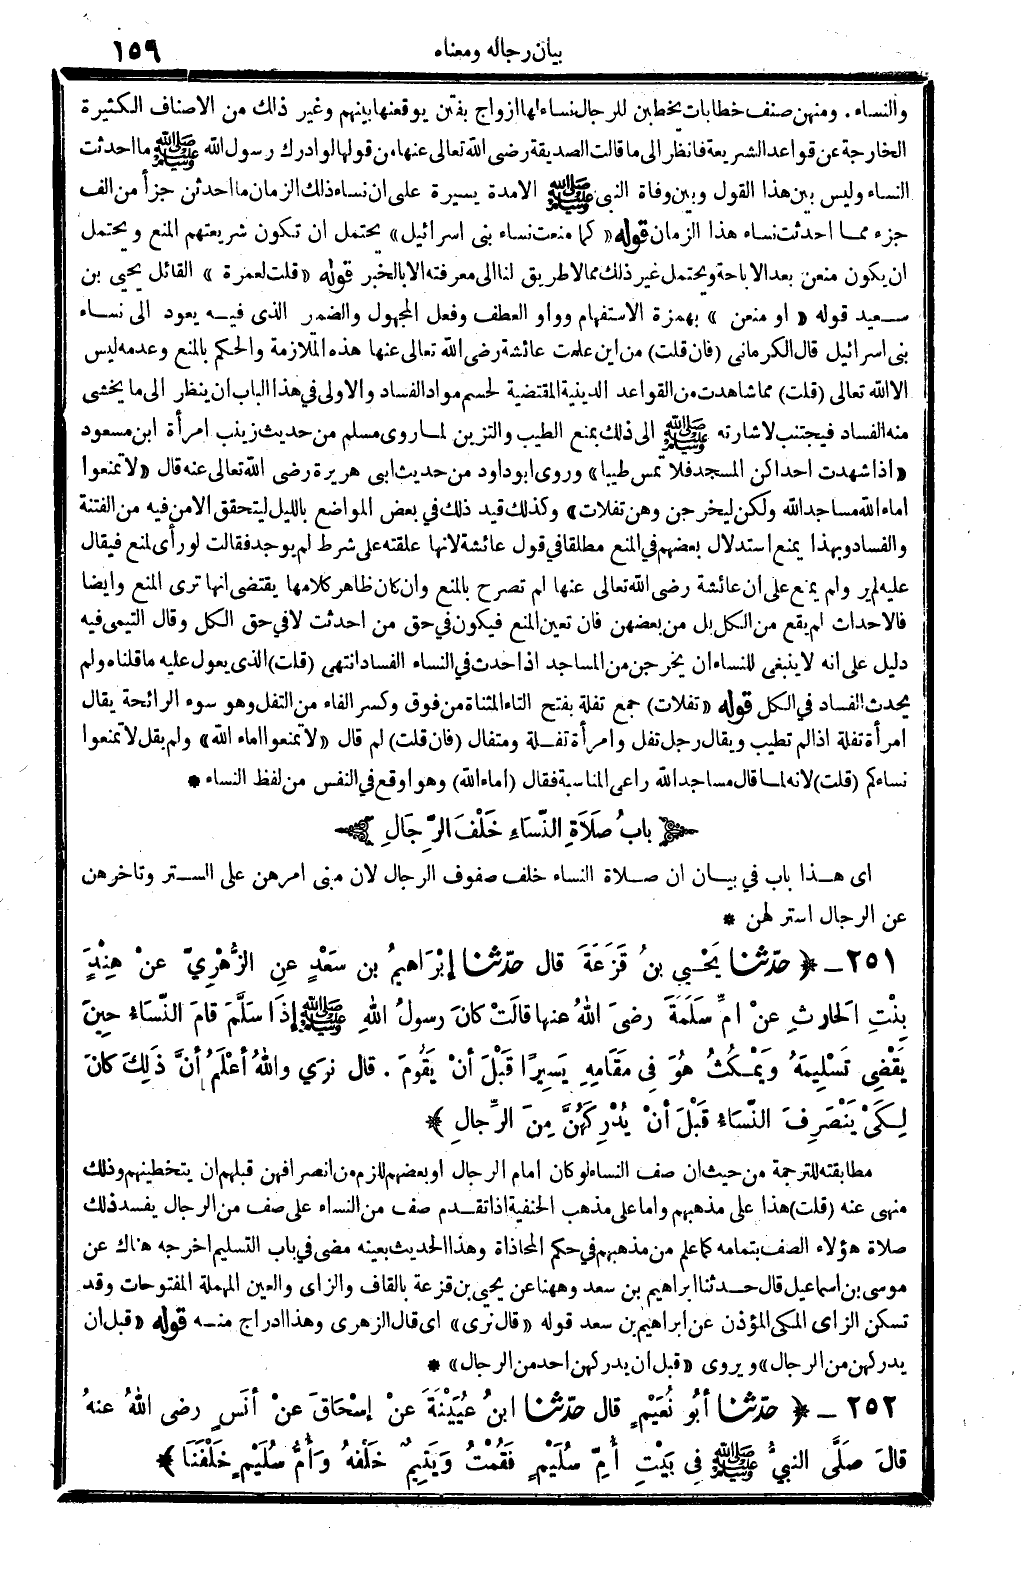 بيان رجاله ومعناه ١٥٩
والنساء . ومنهن صنف خطابات يخطبن للرجال نساء لها ازواج بفتن يوقعنها بينهم وغير ذلك من الاصناف الكثيرة
الخارجة عن قواعد الشريعة فانظر الى ما قالت الصديقة رضى الله تعالى عنها من قولها لو ادرك رسول الله ﷺ ما احدثت
النساء وليس بين هذا القول وبين وفاة النبى ﷺ الا مدة يسيرة على ان نساء ذلك الزمان ما احدثن جزأ من الف
جزء مما احدثت نساء هذا الزمان قوله « كما منعت نساء بنى اسرائيل » يحتمل ان تكون شريعتهم المنع ويحتمل
ان يكون منعن بعد الاباحة ويحتمل غير ذلك مما لا طريق لنا الى معرفته الا بالخبر قوله « قلت لعمرة » القائل يحيى بن
سعيد قوله « او منعن » بهمزة الاستفهام وواو العطف وفعل المجهول والضمر الذى فيه يعود الى نساء
بنى اسرائيل قال الكرمانى (فان قلت) من اين علمت عائشة رضى الله تعالى عنها هذه الملازمة والحكم بالمنع وعدمه ليس
الا لله تعالى (قلت) مما شاهدت من القواعد الدينية المقتضية لحسم مواد الفساد والاولى فى هذا الباب ان ينظر الى ما يخشى
منه الفساد فيجتنب لاشارته ﷺ الى ذلك بمنع الطيب والتزين لما روى مسلم من حديث زينب امرأة ابن مسعود
« اذا شهدت احداكن المسجد فلا تمس طيبا » وروى ابو داود من حديث ابى هريرة رضى الله تعالى عنه قال « لا تمنعوا
اماء الله مساجد الله ولكن ليخرجن وهن تفلات » وكذلك قيد ذلك فى بعض المواضع بالليل ليتحقق الامن فيه من الفتنة
والفساد وبهذا يمنع استدلال بعضهم فى المنع مطلقا فى قول عائشة لانها علقته على شرط لم يوجد فقالت لو رأى لمنع فيقال
عليه لم ير ولم يمنع على ان عائشة رضى الله تعالى عنها لم تصرح بالمنع وان كان ظاهر كلامها يقتضى انها ترى المنع وايضا
فالاحداث لم يقع من الكل بل من بعضهن فان تعين المنع فيكون فى حق من احدثت لا فى حق الكل وقال التيمى فيه
دليل على انه لا ينبغى للنساء ان يخرجن من المساجد اذا حدث فى النساء الفساد انتهى (قلت) الذى يعول عليه ما قلناه ولم
يحدث الفساد فى الكل قوله « تفلات) جمع تفلة بفتح التاء المثناة من فوق وكسر الفاء من التفل وهو سوء الرائحة يقال
امرأة تفلة اذا لم تطيب ويقال رجل تفل وامرأة تفلة ومتفال (فان قلت) لم قال « لا تمنعوا اماء الله » ولم يقل لا تمنعوا
نساءكم (قلت) لانه لما قال مساجد الله راعى المناسبة فقال (اماء الله) وهو اوقع فى النفس من لفظ النساء *
باب صَلَاةِ النِّسَاءِ خَلْفَ الرِّجَالِ
اى هذا باب فى بيان ان صلاة النساء خلف صفوف الرجال لان مبنى امرهن على الستر وتاخرهن
عن الرجال استر لهن *
٢٥١ - ﴿ حَدَّثَنَا يَحْيىَ بنُ قَزَعَةَ قال حَدَّثَنَا إِبْرَاهِيمُ بن سَعْدٍ عنِ الزُّهْرِيِّ عنْ هِنْدٍ
بِنْتِ الحَارِثِ عنْ امِّ سَلَمَةَ رضىَ اللهُ عنها قالَتْ كانَ رسولُ اللهِ ﷺ إذَا سَلَّمَ قامَ النِّسَاءُ حِينَ
يَقْضِى تَسْلِيمَهُ وَيَمْكُثُ هُوَ فِى مَقَامِهِ يَسِيرًا قَبْلَ أنْ يَقُومَ . قال نرَي واللهُ أعْلَمُ أنَّ ذَلِكَ كانَ
لِكَىْ يَنْصَرِفَ النِّسَاءُ قَبْلَ أنْ يُدْرِكَهُنَّ مِنَ الرِّجالِ ﴾
مطابقته للترجمة من حيث ان صف النساء لو كان امام الرجال او بعضهم للزم من انصرافهن قبلهم ان يتخطينهم وذلك
منهى عنه (قلت) هذا على مذهبهم واما على مذهب الحنفية اذا تقدم صف من النساء على صف من الرجال يفسد ذلك
صلاة هؤلاء الصف بتمامه كما علم من مذهبهم فى حكم المحاذاة وهذا الحديث بعينه مضى فى باب التسليم اخرجه هناك عن
موسى بن اسماعيل قال حدثنا ابراهيم بن سعد وههنا عن يحيى بن قزعة بالقاف والزاى والعين المهملة المفتوحات وقد
تسكن الزاى المكى المؤذن عن ابراهيم بن سعد قوله « قال نرى » اى قال الزهرى وهذا ادراج منه قوله « قبل ان
يدركهن من الرجال » ويروى « قبل ان يدركهن احد من الرجال » *
٢٥٢ - ﴿ حَدَّثَنَا أبُو نُعَيْمٍ قال حَدَّثَنَا ابنُ عُيَيْنَةَ عنْ إسْحَاقَ عنْ أنَسٍ رضى اللهُ عنهُ
قالَ صَلَّى النبيُّ ﷺ فِى بَيْتِ أُمِّ سُلَيْمٍ فَقُمْتُ وَيَتِيمٌ خَلْفَهُ وَأُمُّ سُلَيْمٍ خَلْفَنَا ﴾